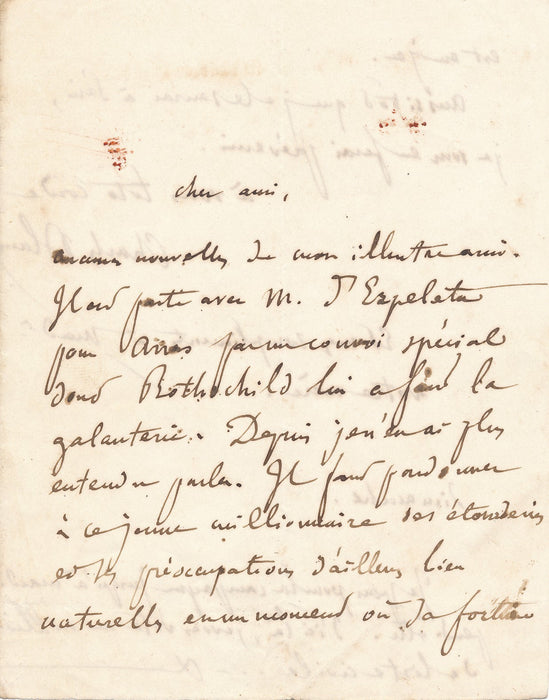 cher ami,
aucunes nouvelles de mon illustre ami.
Il est parti avec M. d'Ezpeleta
pour Arras par un convoi spécial
dont Rothschild lui a fait la
galanterie. Depuis je n'en ai plus
entendu parler. Il faut pardonner
à ce jeune millionnaire ses étourderies
et ses préoccupations d'ailleurs bien
naturelles en un moment où sa fortune